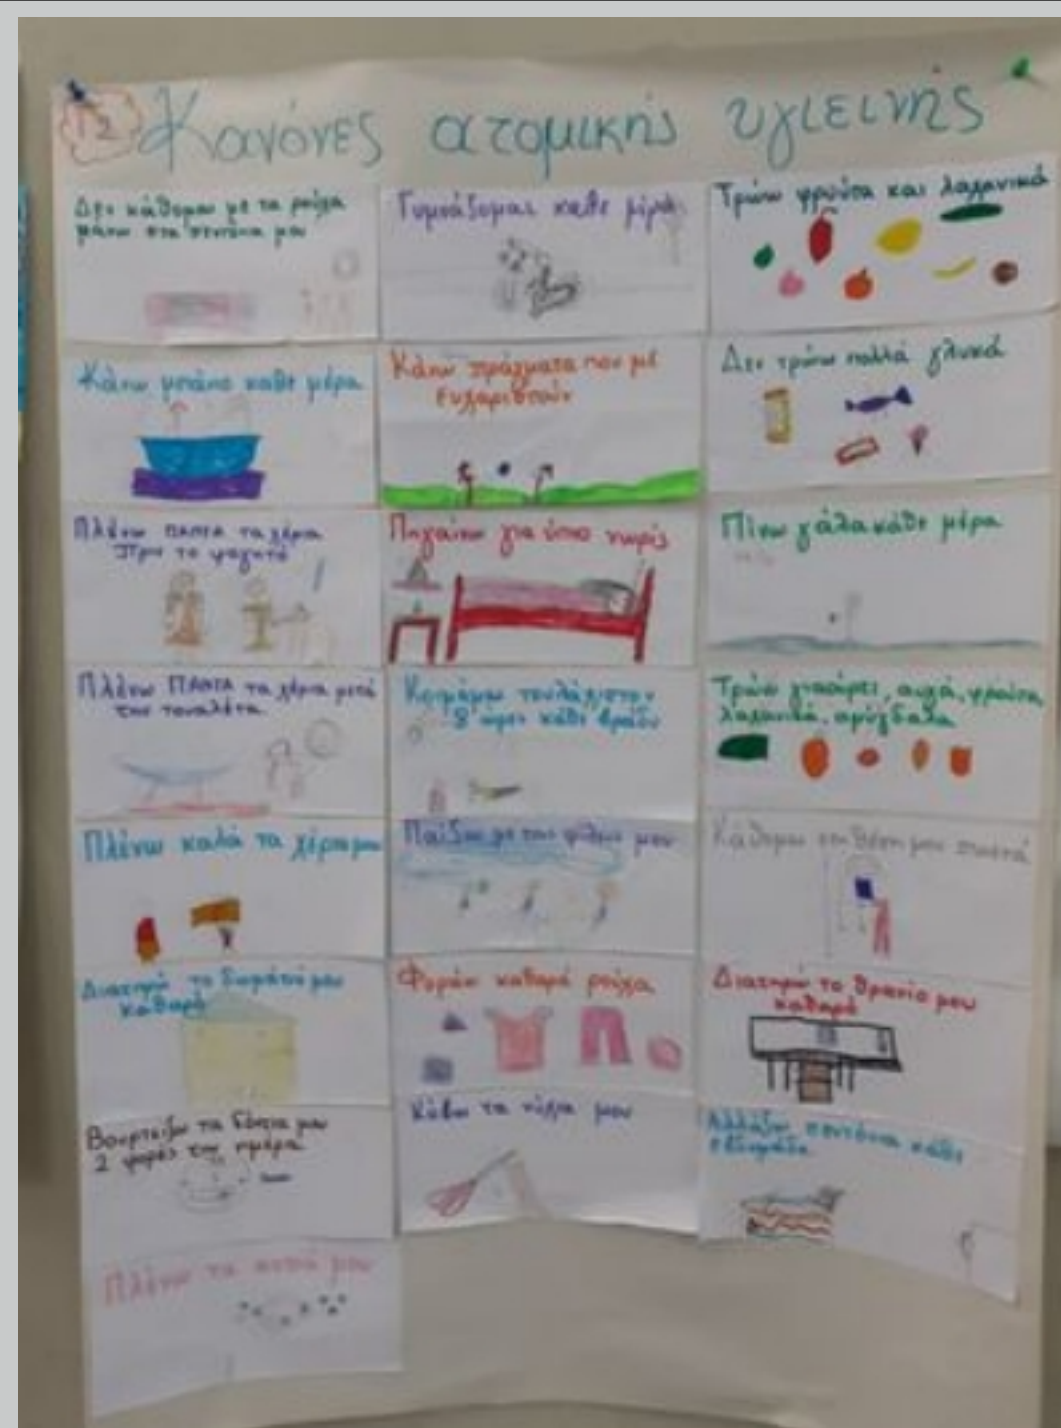 Γ2 Κανόνες ατομικής υγιεινής
Δεν κάθομαι με τα ρούχα
πάνω στα σεντόνια μου
Κάνω μπάνιο κάθε μέρα
Πλένω ΠΑΝΤΑ τα χέρια
πριν το φαγητό
Πλένω ΠΑΝΤΑ τα χέρια μετά
την τουαλέτα
Πλένω καλά τα χέρια μου
Διατηρώ το δωμάτιό μου
καθαρό
Βουρτσίζω τα δόντια μου
2 φορές την ημέρα
Πλένω τα αυτιά μου
Γυμνάζομαι κάθε μέρα
Κάνω πράγματα που με
ευχαριστούν
Πηγαίνω για ύπνο νωρίς
Κοιμάμαι τουλάχιστον
8 ώρες κάθε βράδυ
Παίζω με τους φίλους μου
Φοράω καθαρά ρούχα
Κόβω τα νύχια μου
Τρώω φρούτα και λαχανικά
Δεν τρώω πολλά γλυκά
Πίνω γάλα κάθε μέρα
Τρώω γιαούρτι, αυγά, φρούτα,
λαχανικά, αμύγδαλα
Κάθομαι στη θέση μου σωστά
Διατηρώ το θρανίο μου
καθαρό
Αλλάζω σεντόνια κάθε
εβδομάδα